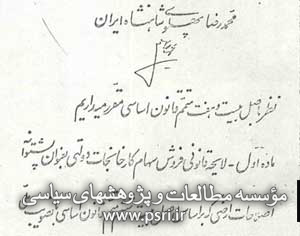 محمدرضا پهلوی شاهنشاه ایران
نظر باصل بیست و هفت متمم قانون اساسی مقرر میداریم
ماده اول - لایحه قانونی فروش سهام کارخانجات دولتی بعنوان پشتوانه
مؤسسه مطالعات و پژوهشهای سیاسی
اصلاحات ارضی که براساس قانون اساسی بتصویب
www.psri.ir